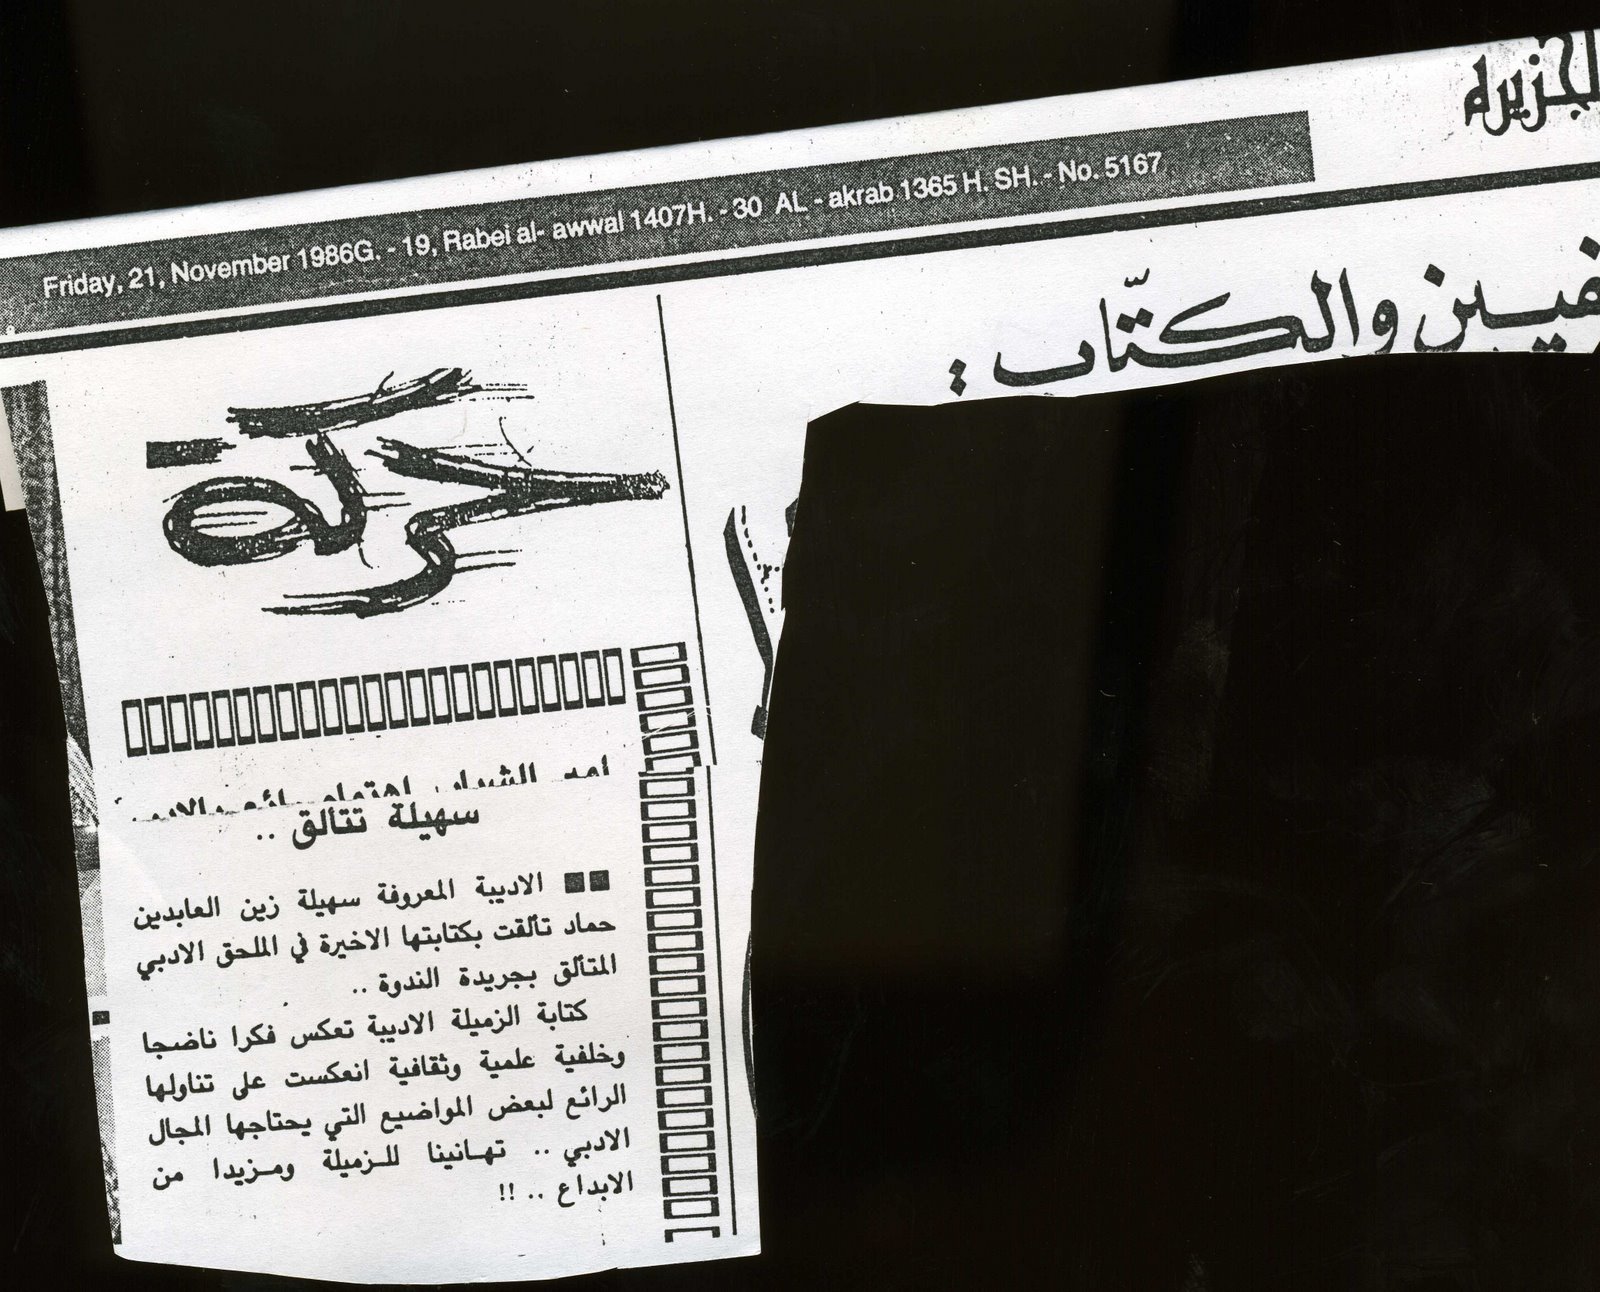 الجزيرة
Friday, 21, November 1986G. - 19, Rabei al- awwal 1407H. - 30 AL - akrab 1365 H. SH. - No. 5167
والكتّاب :
حركة
سهيلة تتألق ..
الاديبة المعروفة سهيلة زين العابدين
حماد تألقت بكتابتها الاخيرة في الملحق الادبي
المتألق بجريدة الندوة ..
كتابة الزميلة الاديبة تعكس فكرا ناضجا
وخلفية علمية وثقافية انعكست على تناولها
الرائع لبعض المواضيع التي يحتاجها المجال
الادبي .. تهانينا للزميلة ومزيدا من
الابداع .. !!